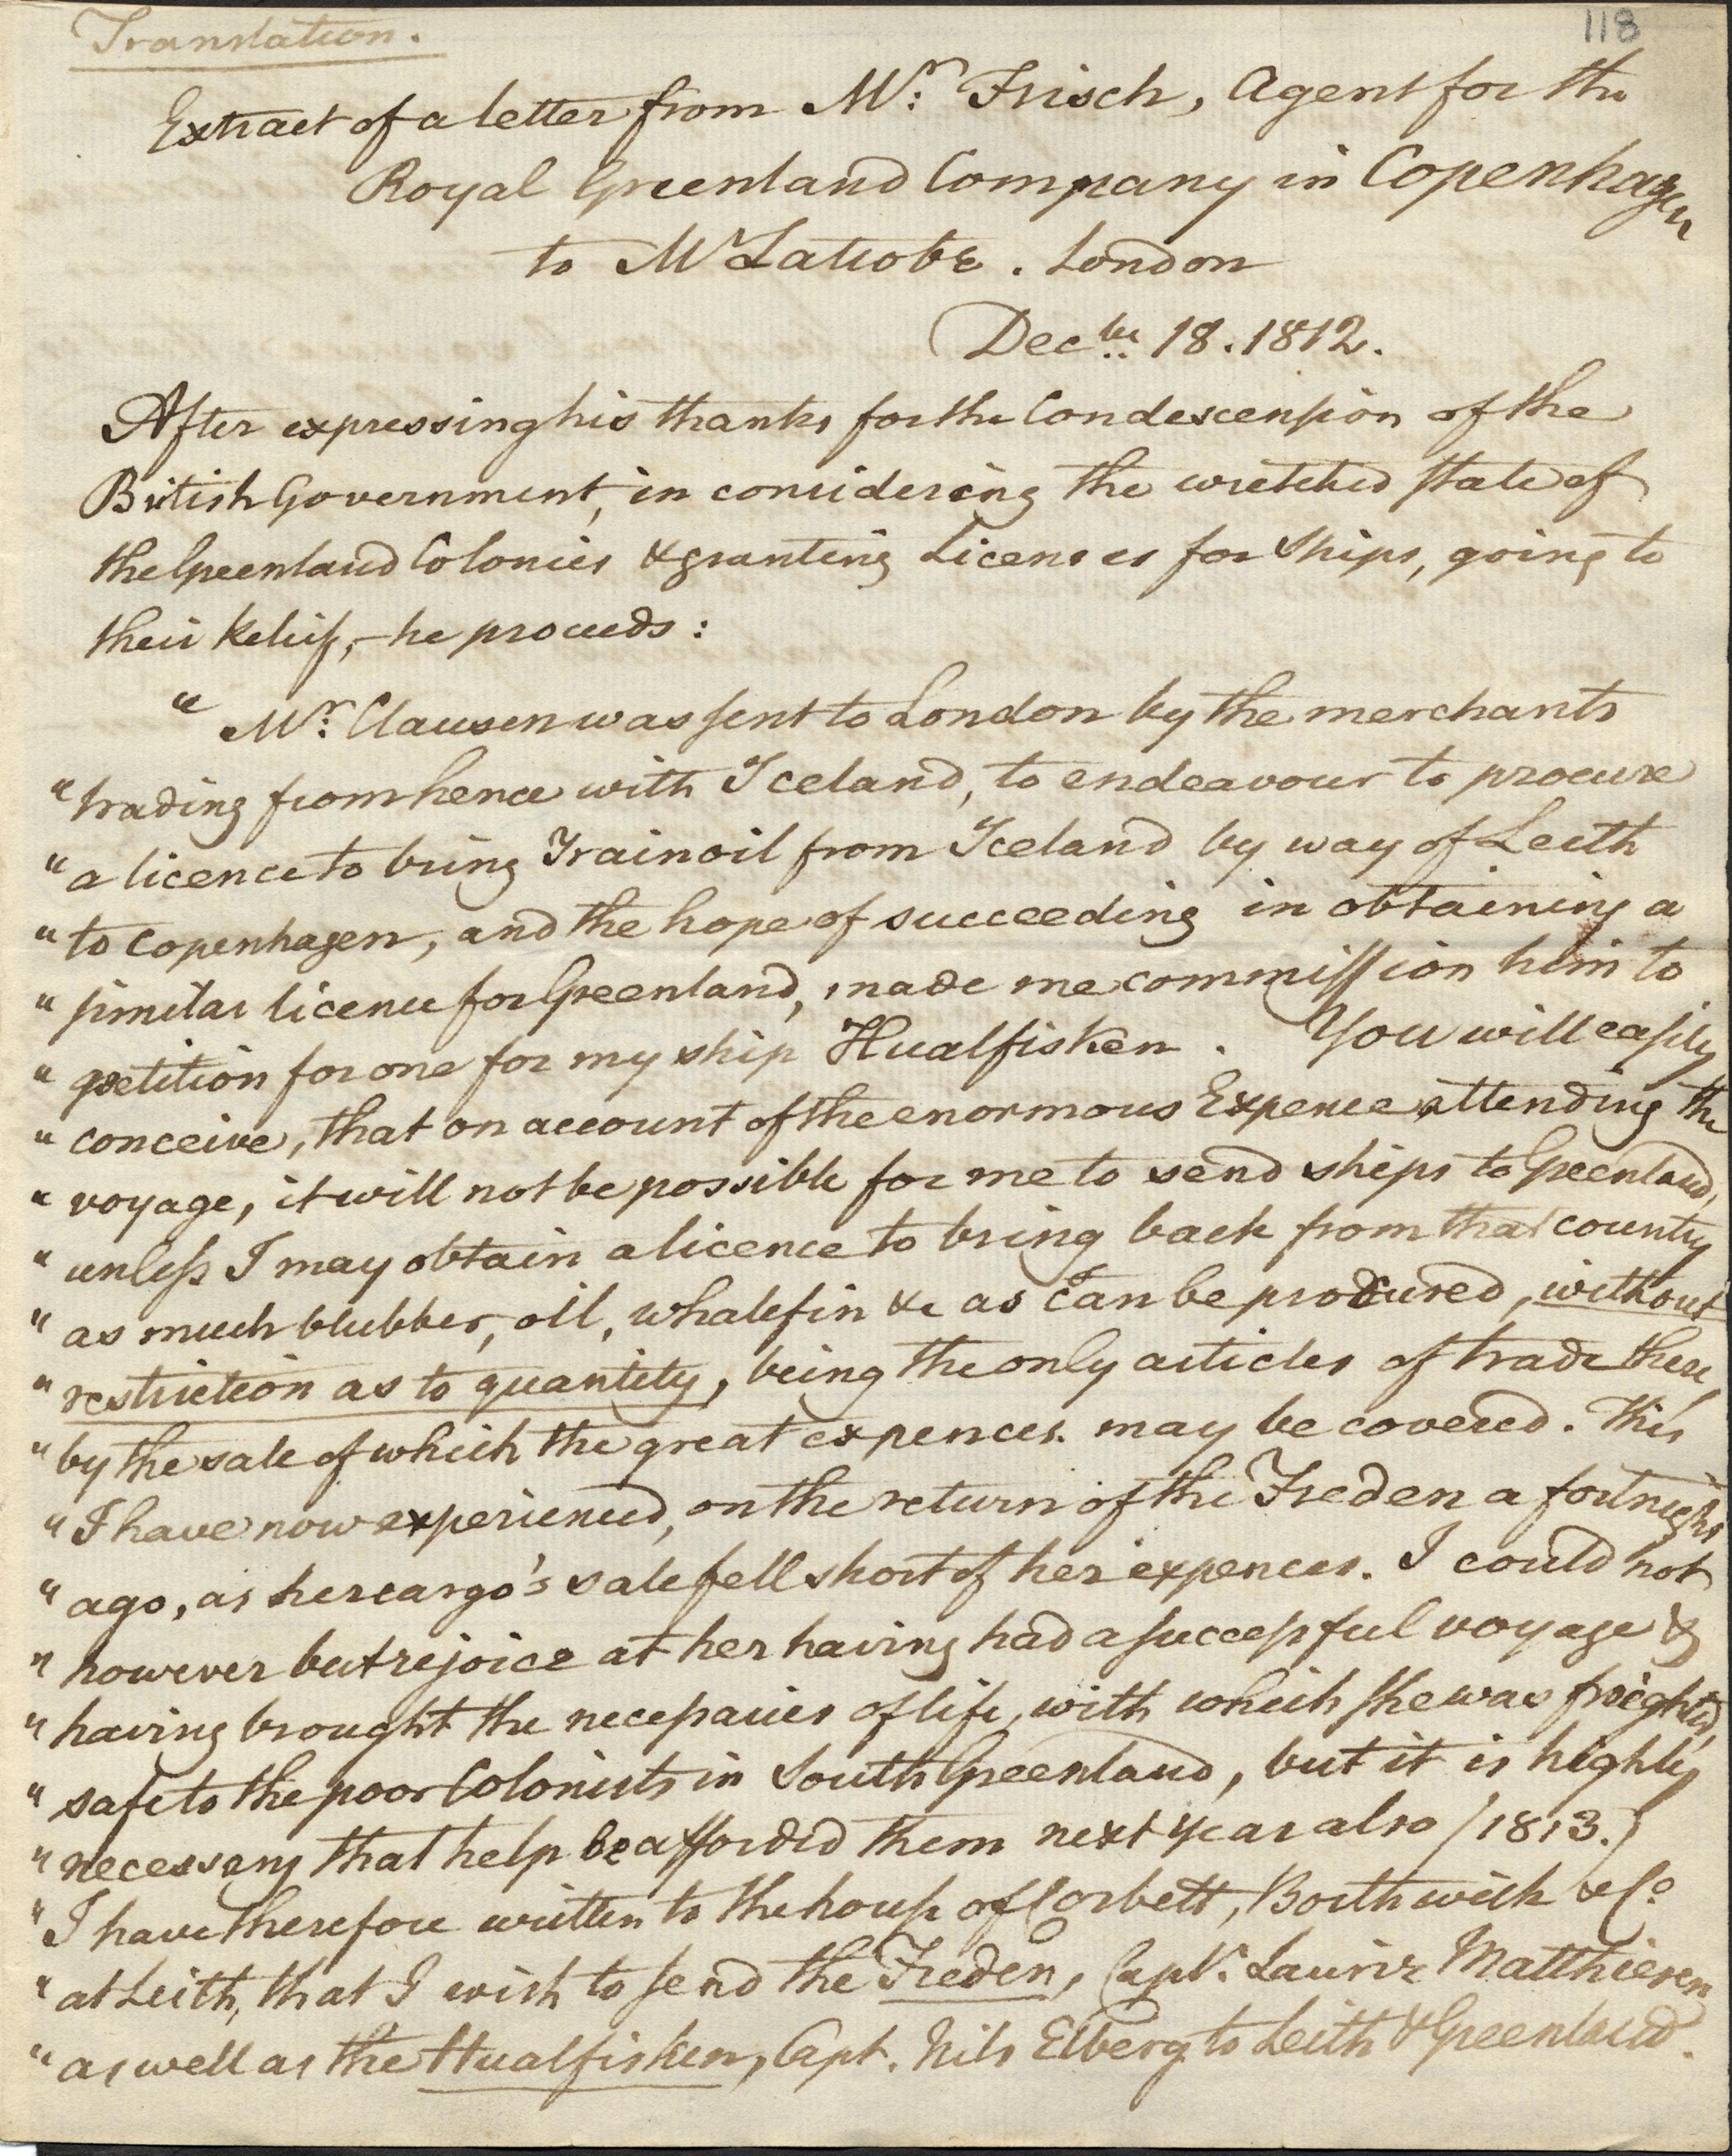 Translation.
118
Extract of a letter from Mr. Frisch, Agent for the
Royal Greenland Company in Copenhagen
to Mr Latrobe. London
Decber. 18. 1812.
After expressing his thanks for the Condescension of the
British Government, in considering the wretched state of
the Greenland Colonies & granting Licenses for Ships, going to
their Relief, – he proceeds:
" Mr. Clausen was sent to London by the merchants
" trading from hence with Iceland, to endeavour to procure
" a licence to bring Train oil from Iceland by way of Leith
" to Copenhagen, and the hope of succeeding in obtaining a
" similar licence for Greenland, made me commission him to
" petition for one for my ship Hualfisken. You will easily
" conceive, that on account of the enormous Expence attending the
" voyage, it will not be possible for me to send ships to Greenland,
" unless I may obtain a licence to bring back from that country
" as much blubber, oil, whalefin &c as can be procured, without
" restriction as to quantity, being the only articles of trade there,
" by the sale of which the great expences may be covered. This
" I have now experienced, on the return of the Freden a fortnight
" ago, as her cargo's sale fell short of her expences. I could not
" however but rejoice at her having had a successful voyage &
" having brought the necessaries of life, with which she was freighted,
" safe to the poor Colonists in South Greenland, but it is highly
" necessary that help be afforded them next year also (1813.)
" I have therefore written to the house of Corbett, Borthwick & Co
" at Leith, that I wish to send the Freden, Capt. Lauriz Matthiesen
" as well as the Hualfisken, Capt. Nils Elberg to Leith & Greenland.